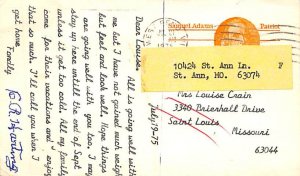 Dear Louise, All is going well with
me but I have not gained much weight
but feel and look well. Hope things
are going well with you too, I may
stay up here until the end of Oct
unless it get too cold. All my family
come for their vacations and enjoy
that so much. I'll call you when I
get home.
Fondly
July-19-75
Samuel Adams
Patriot
10424 St. Ann Ln. F
St. Ann, MO. 63074
Mrs Louise Crain
3340 Brierhall Drive
Saint Louis
Missouri
63044